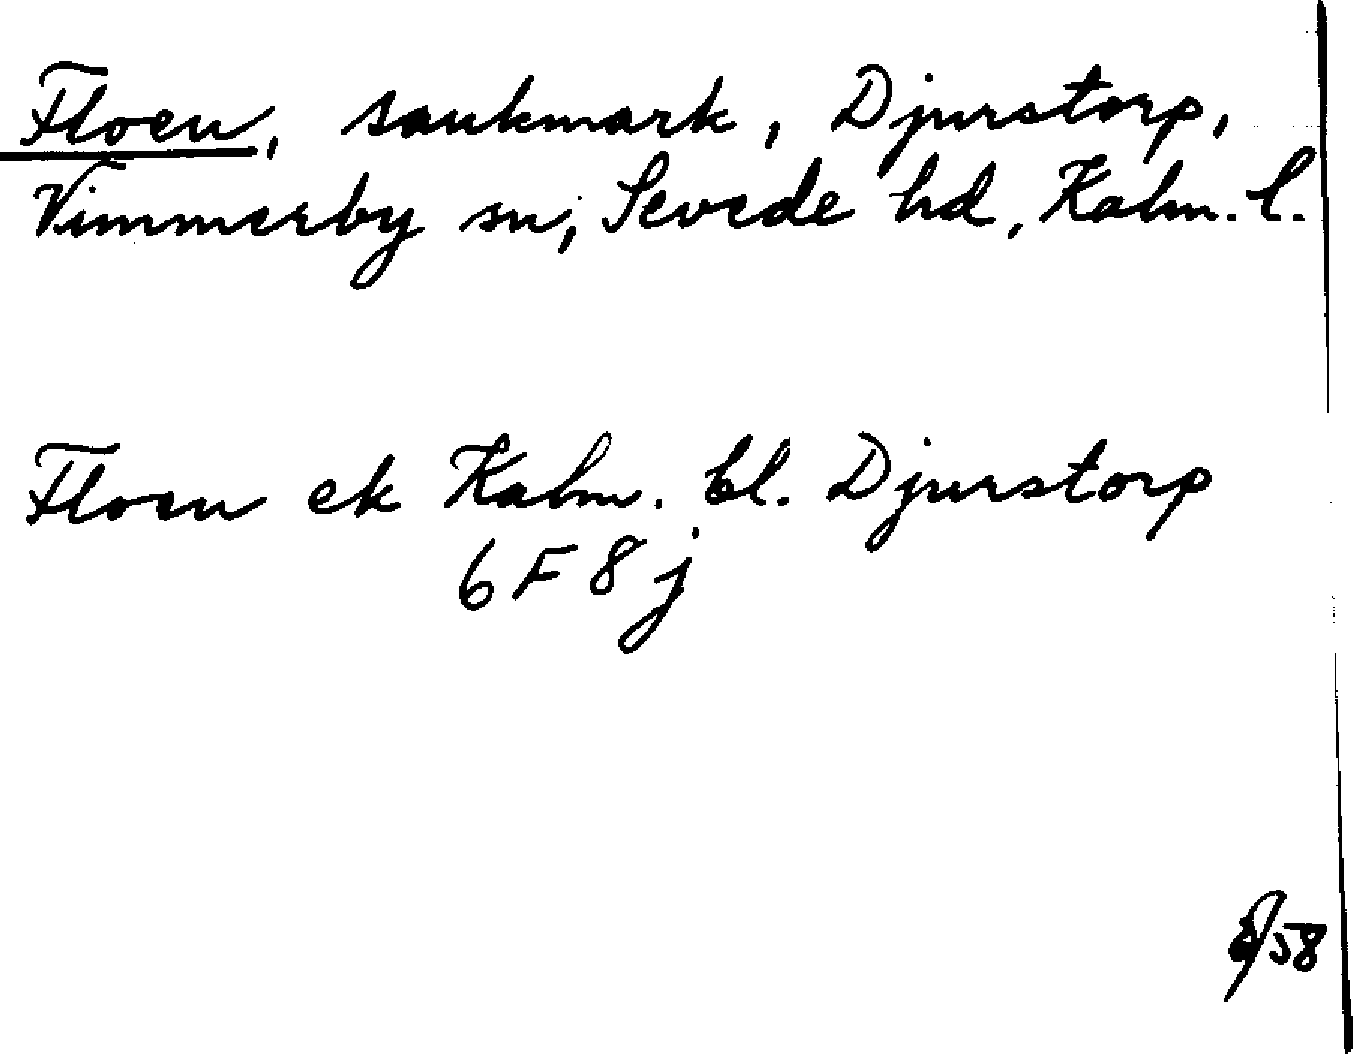 Floen, sankmark, Djurstorp,
Vimmerby sn, Sevede hd, Kalm. l.
Floen ek Kalm. bl. Djurstorp
6 F 8 j
/58